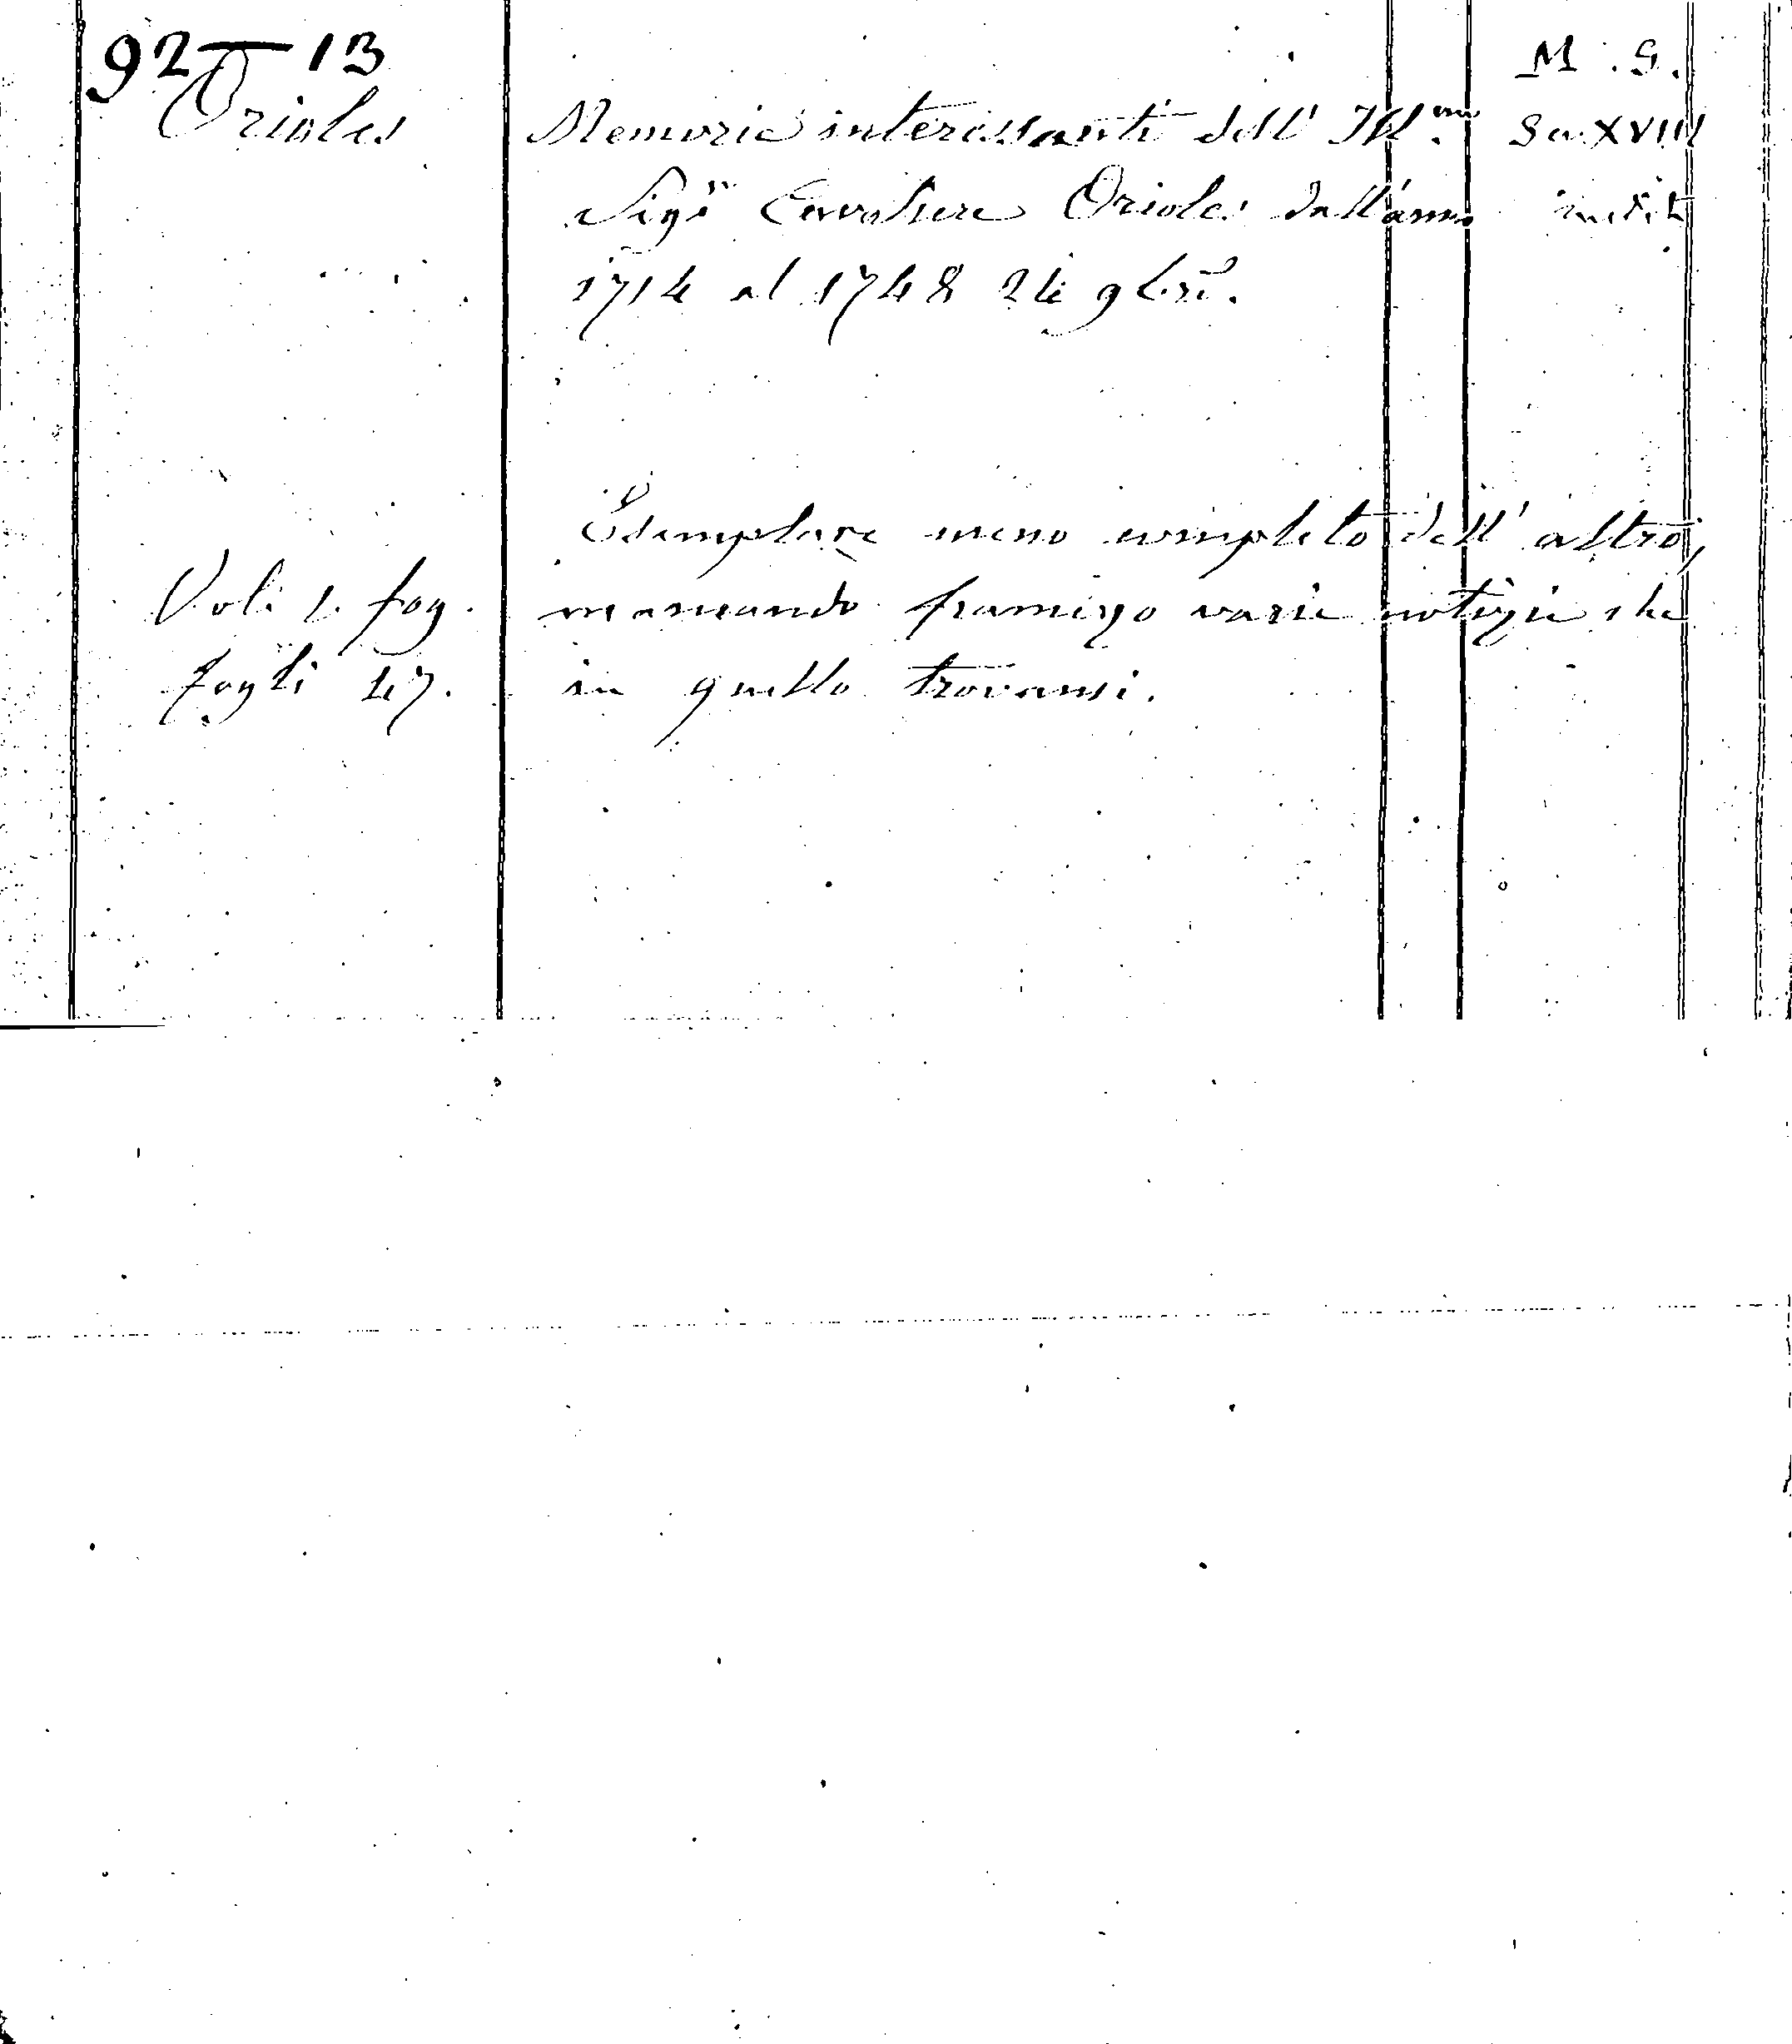 92—13
M. S.
Orioles
Memorie interessanti dell' Ill.mo
Sec. XVIII
Sigr. Cavaliere Orioles dall'anno
inedit
1714 al 1748 24 9bre.
Esemplare meno completo dell' altro,
Vol: 1. fog.
mancando frammezo varie notizie che
fogli 47.
in quello trovansi.